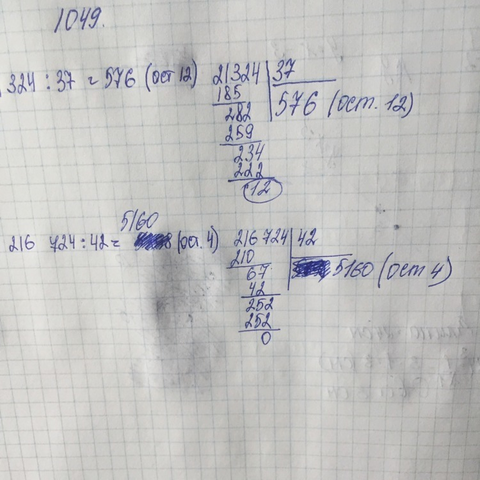 1049.
324 : 37 = 576 (ост 12) 21324 37
185 576 (ост. 12)
282
259
234
222
12
5160
216 724 : 42 = (ост. 4) 216 724 42
210 5160 (ост 4)
67
42
252
252
0